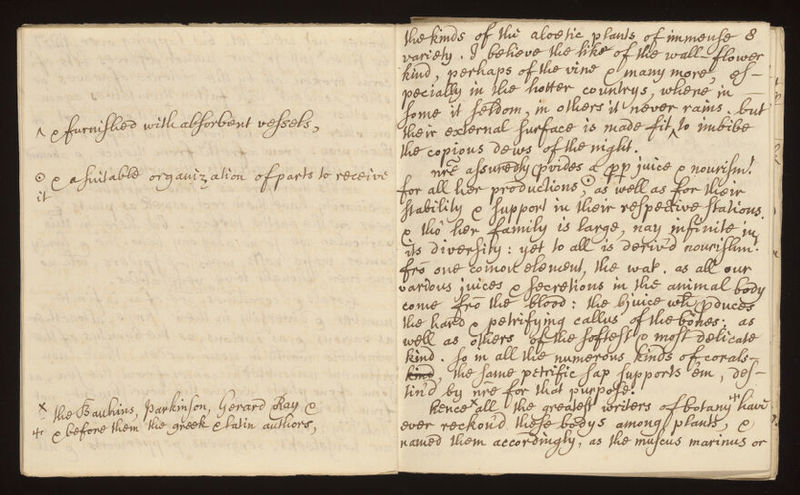 ^ & furnished with absorbent vessels,
⊙ & a suitable organization of parts to receive
it
x the Bauhins, Parkinson, Gerard Ray &
& before them the greek & latin authors,
the kinds of the aloetic plants of immense 8
variety. I believe the like of the wall-flower
kind, perhaps of the vine & many more, es-
pecially in the hotter countrys, where in
some it seldom, in others it never rains. but
their external surface is made fit ^ to imbibe
the copious dews of the night.
nr̃e assuredly pvides a pp juice & nourishmt.
for all her productions, ⊙ as well as for their
stability & support in their respective stations.
& tho' her family is large, nay infinite in
its diversity: yet to all is deriv'd nourishmt.
fro one comon element, the wat. as all our
various juices & secretions in the animal body
come fro the blood: the juice wh pduces
the hard & petrifying callus of the bones: as
well as others of the softest & most delicate
kind. so in all the numerous kinds of corals-
kind, the same petrific sap supports 'em, des-
tin'd by nr̃e for that purpose.
hence x all the greatest writers of botany have
ever reckon'd these bodys among plants, &
named them accordingly, as the muscus marinus or